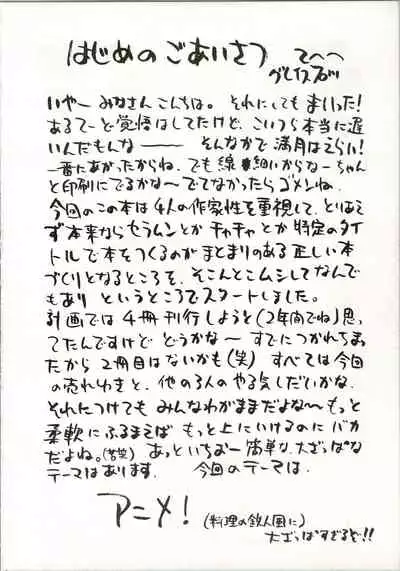 はじめのごあいさつ てへへ
グレイス
いやーみなさんこんちは。それにしてもまいった!
あるてーど覚悟はしてたけど、こいつら本当に遅
いんだもんなー そんなかで満月はえらい!
一番にあがったからね、でも線細いからなーちゃん
と印刷にでるかな〜でてなかったらゴメンね。
今回のこの本は4人の作家性を重視して、とりあえ
ず本来ならセラムンとかチャチャとか特定のタイ
トルで本をつくるのがまとまりのある正しい本
づくりとなるところを、そこんとこムシしてなんで
もあり というところでスタートしました。
計画では4冊刊行しようと(2年間でね)思っ
てたんですけど どうかな〜 すでにつかれちまっ
たから2冊目はないかも(笑) すべては今回
の売れゆきと、他の3人のやる気しだいかな。
それにつけてもみんなわがままだよな〜もっと
柔軟にふるまえば もっと上にいけるのにバカ
だよね。(苦笑) あっといちおー簡単な、大ざっぱな
テーマはあります。 今回のテーマは、
アニメ! (料理の鉄人風に)
大ざっぱすぎるぞ!!